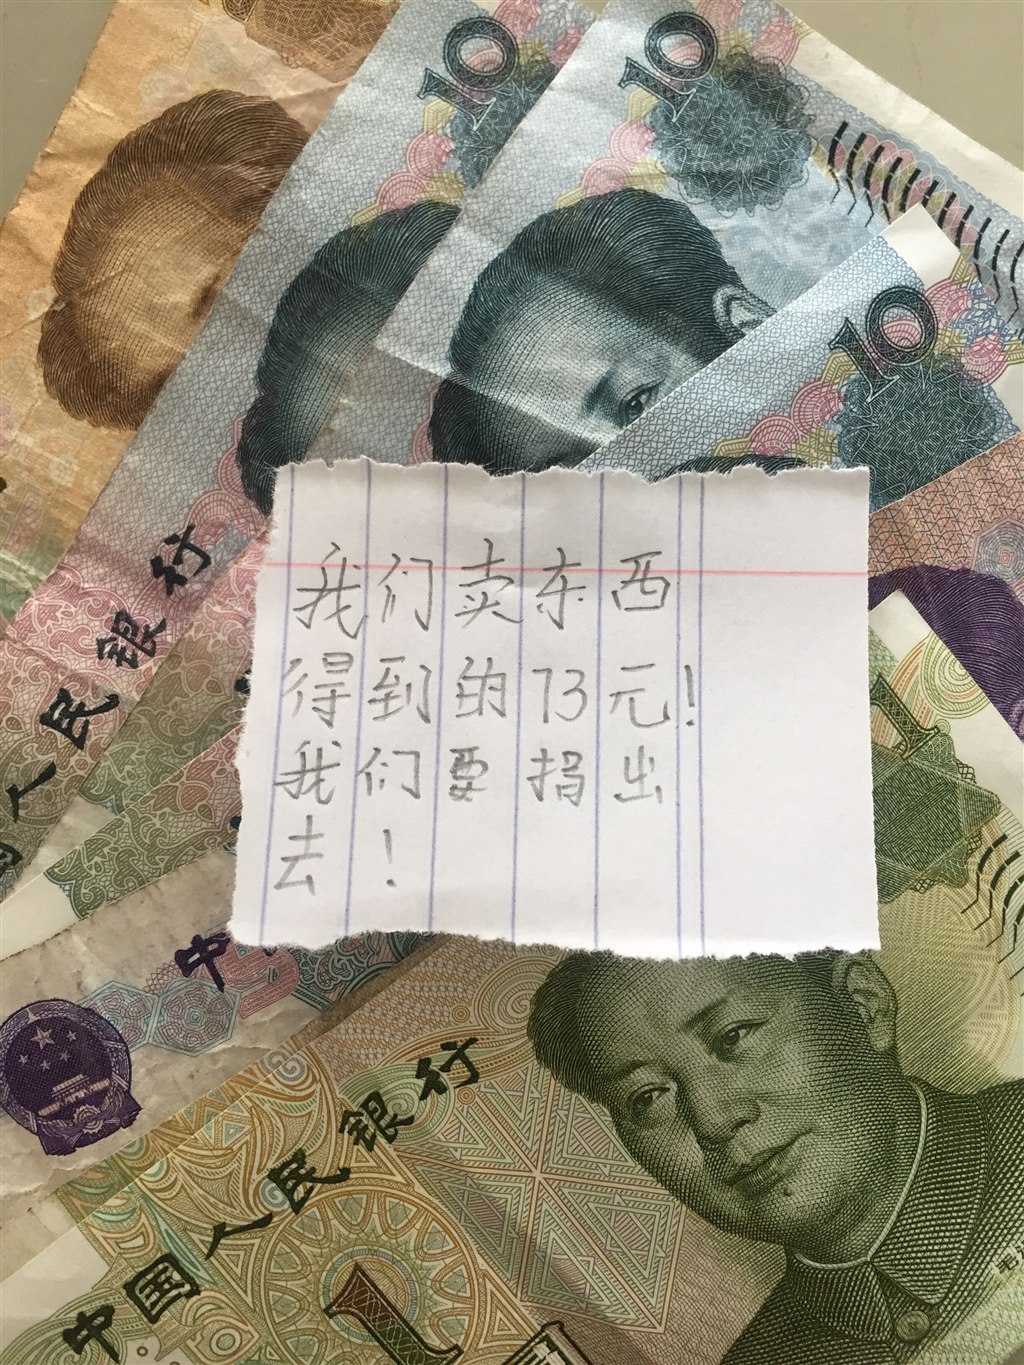 10
10
10
我们卖东西
得到的73元!
我们要捐出
去!
人民银行
中
5
1
中国人民银行
1